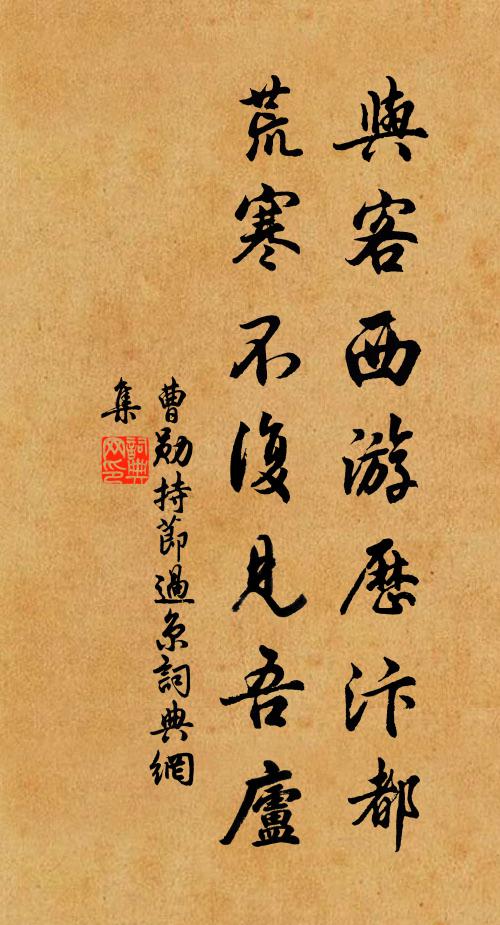 與客西游歷汴都
荒寒不復見吾廬
曹勛持節過京詞典網
集
詞典網印